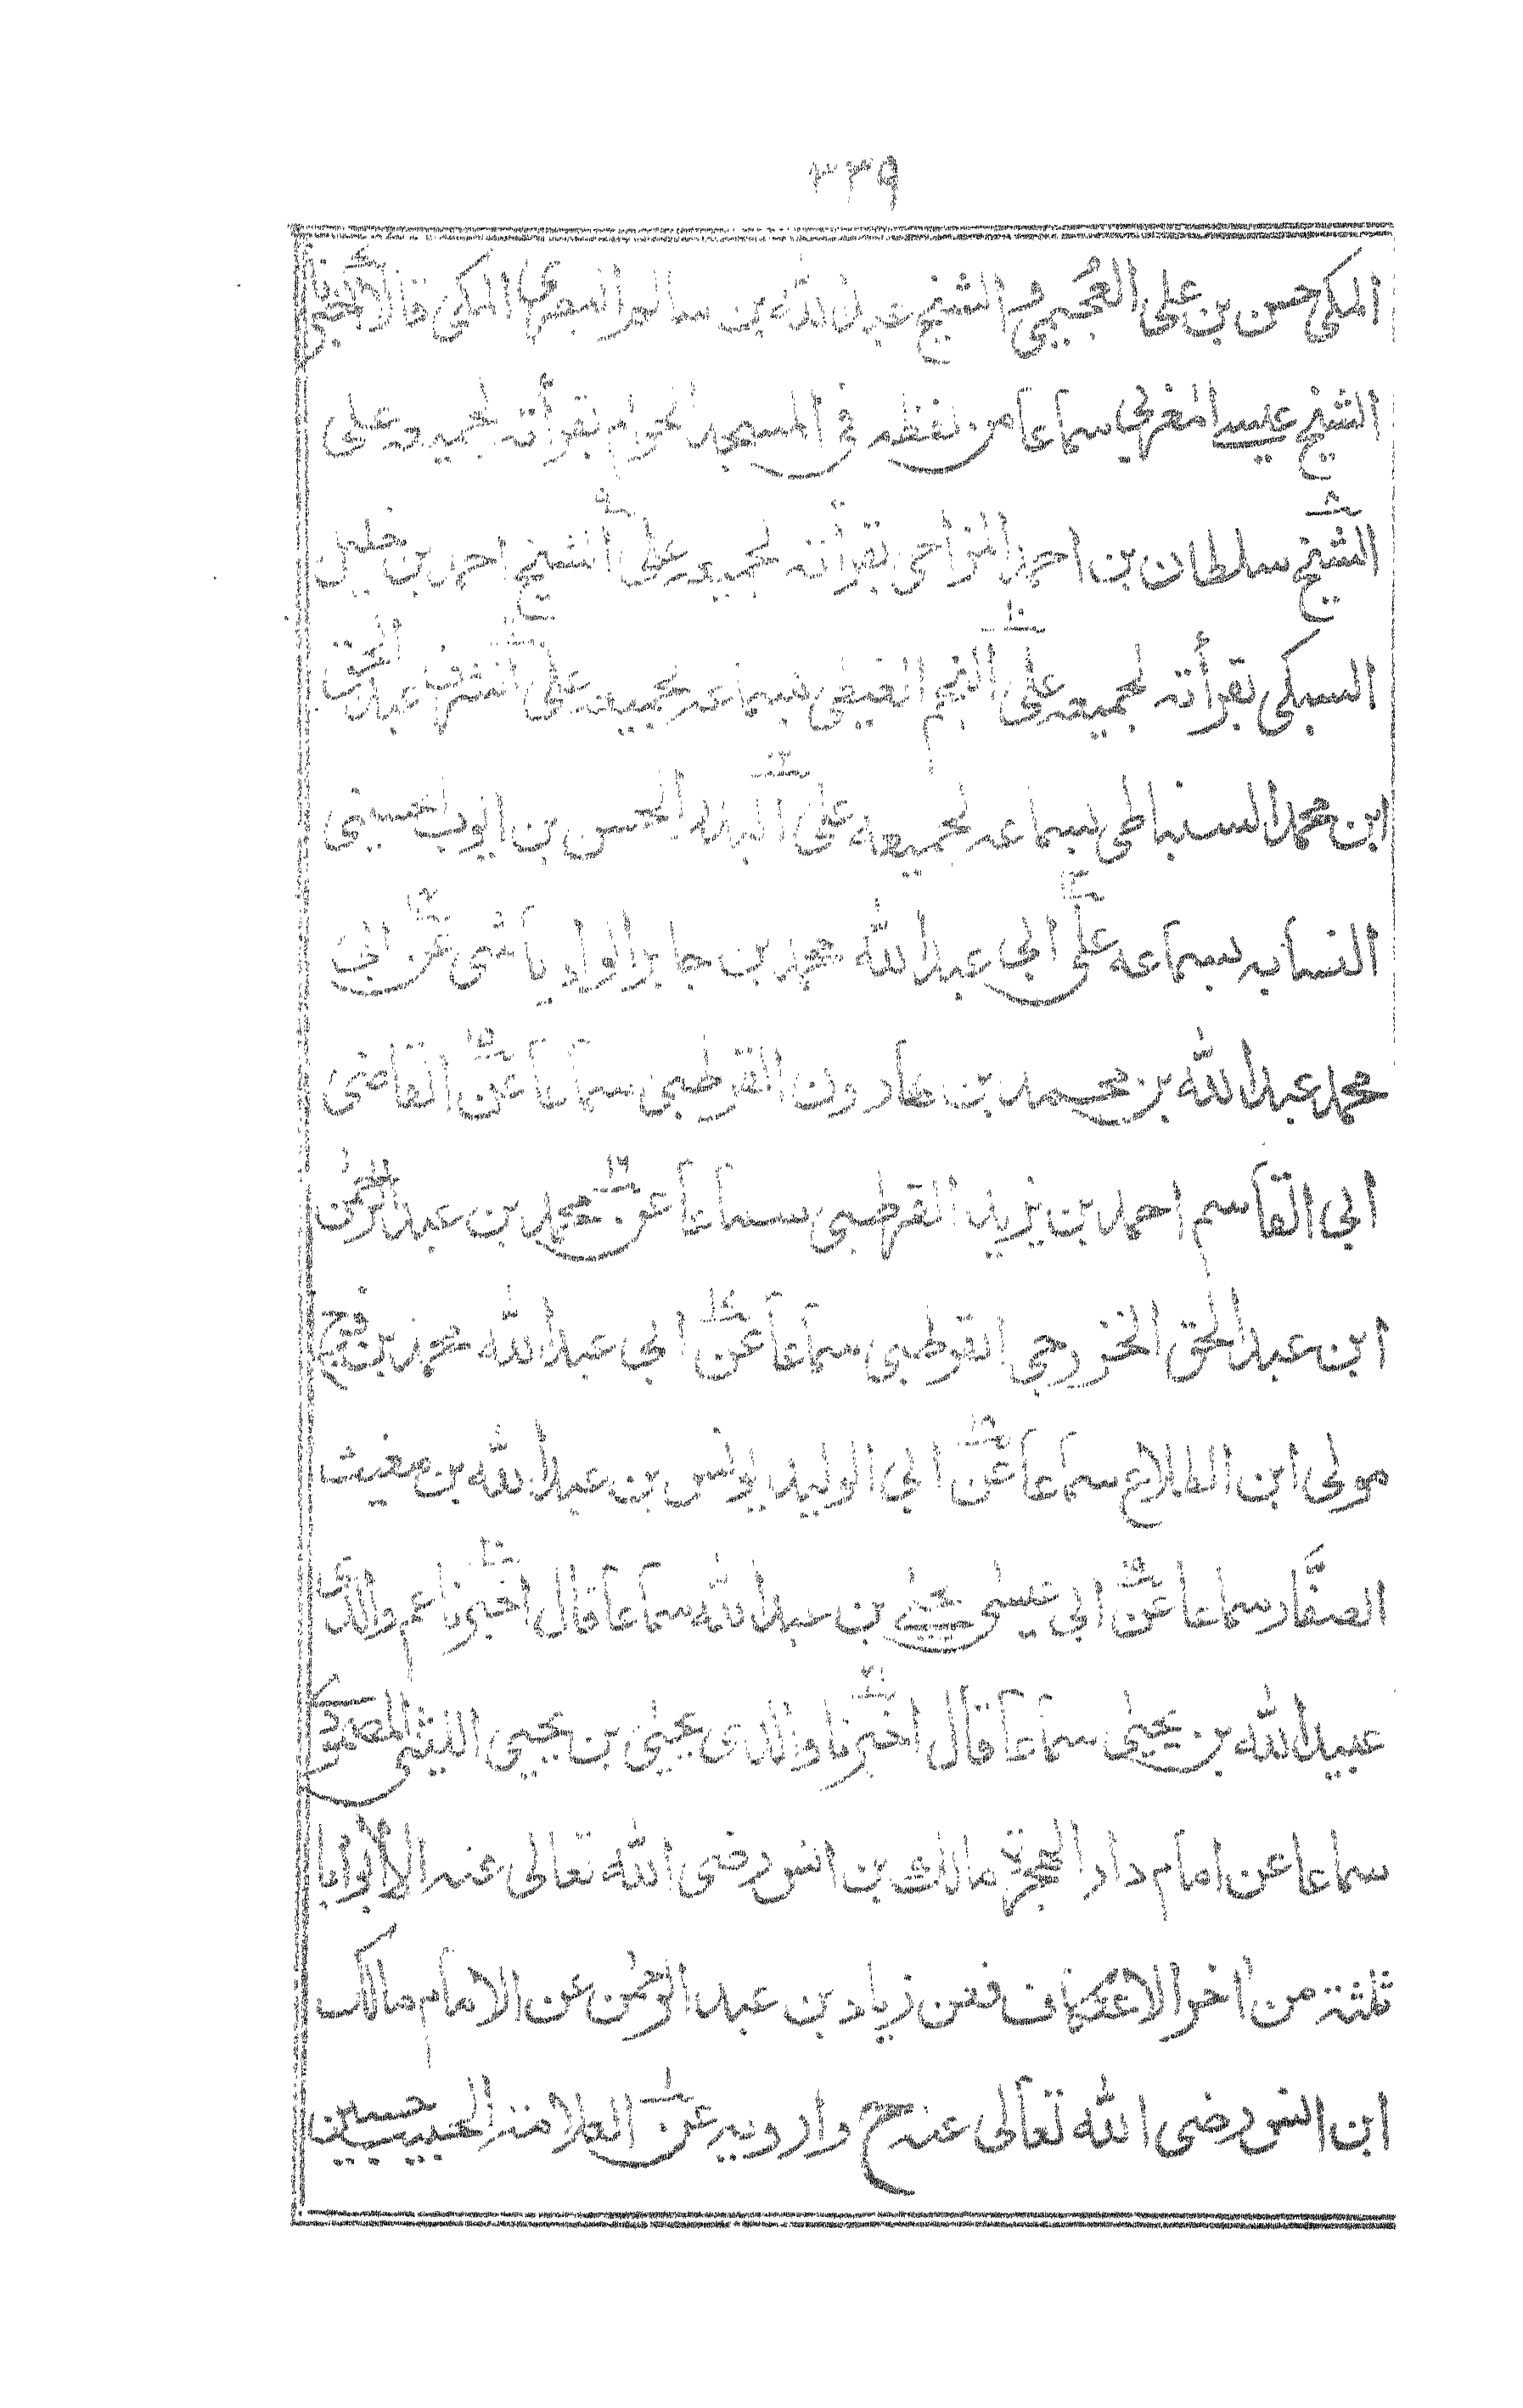 ٣٣٩
المكى حسن بن على العُجَيمى و الشيخ عبد الله بن سالم البصرى المكى قالا اخبرنا
الشيخ عيسے المغربي سماعا من لفظه فى المسجد الحرام بقرأته لجميعه على
الشيخ سلطان بن احمد المزاحى بقرأته لجميعه على الشيخ احمد بن خليل
السبكى بقرأته لجميعه على النجم الغيطى بسماعه لجميعه على الشرف عبد الحق
ابن محمد السنباطى بسماعه لجميعه على البدر الحسن بن ايوب الحسينى
النسابه بسماعه على ابي عبد الله محمد بن جابر الوادياشى عن ابي
محمد عبد الله بن محمد بن هارون القرطبى سماعا عن القاضى
ابي القاسم احمد بن يزيد القرطبى سماعا عن محمد بن عبد الرحمٰن
ابن عبد الحق الخزرجى القرطبى سماعا عن ابى عبد الله محمد بن فرج
مولى ابن الطلاع سماعا عن ابي الوليد يونس بن عبد الله بن مغيث
الصفَّار سماعا عن ابي عيسى يحيى بن عبد الله سماعا قال اخبرنا عم والدى
عبيد الله بن يحيى سماعا قال اخبرنا والدى يحيى بن يحيى الليثى المصمودى
سماعا عن امام دار الهجرة مالك بن انس رضى الله تعالى عنه الا ابوابا
ثلثة من اٰخر الاعتكاف فعن زياد بن عبد الرحمٰن عن الامام مالك
ابن انس رضى الله تعالى عنه ح وارويه عن العلامة الحبيب حسين